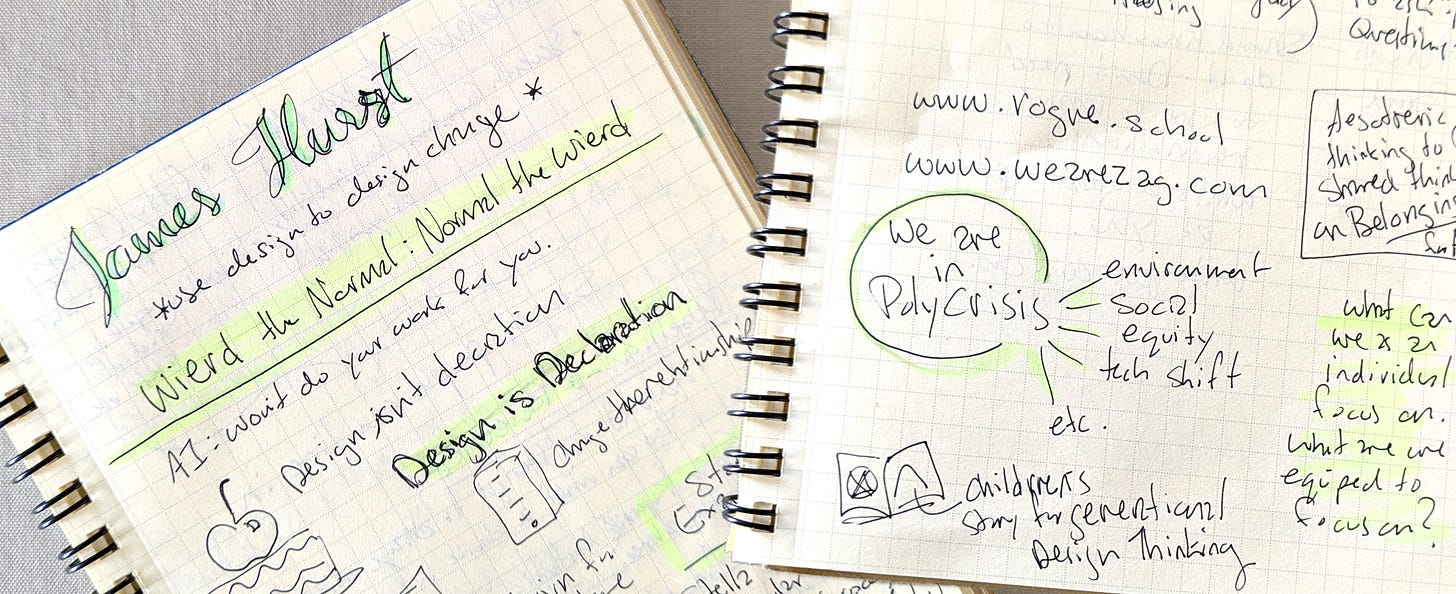 James Hurst
*use design to design change*
Wierd the Normal: Normal the Wierd
AI: won't do your work for you.
Design isn't decration
Design is Declaration
change the relationship
www.rogue.school
www.wearezag.com
We are
in
PolyCrisis
environment
social
equity
tech shift
etc.
childrens
story for generational
Design Thinking
Question
thinking to
shared
on Belonging
what can
we as an
individual
focus on.
what are we
equiped to
focus on?